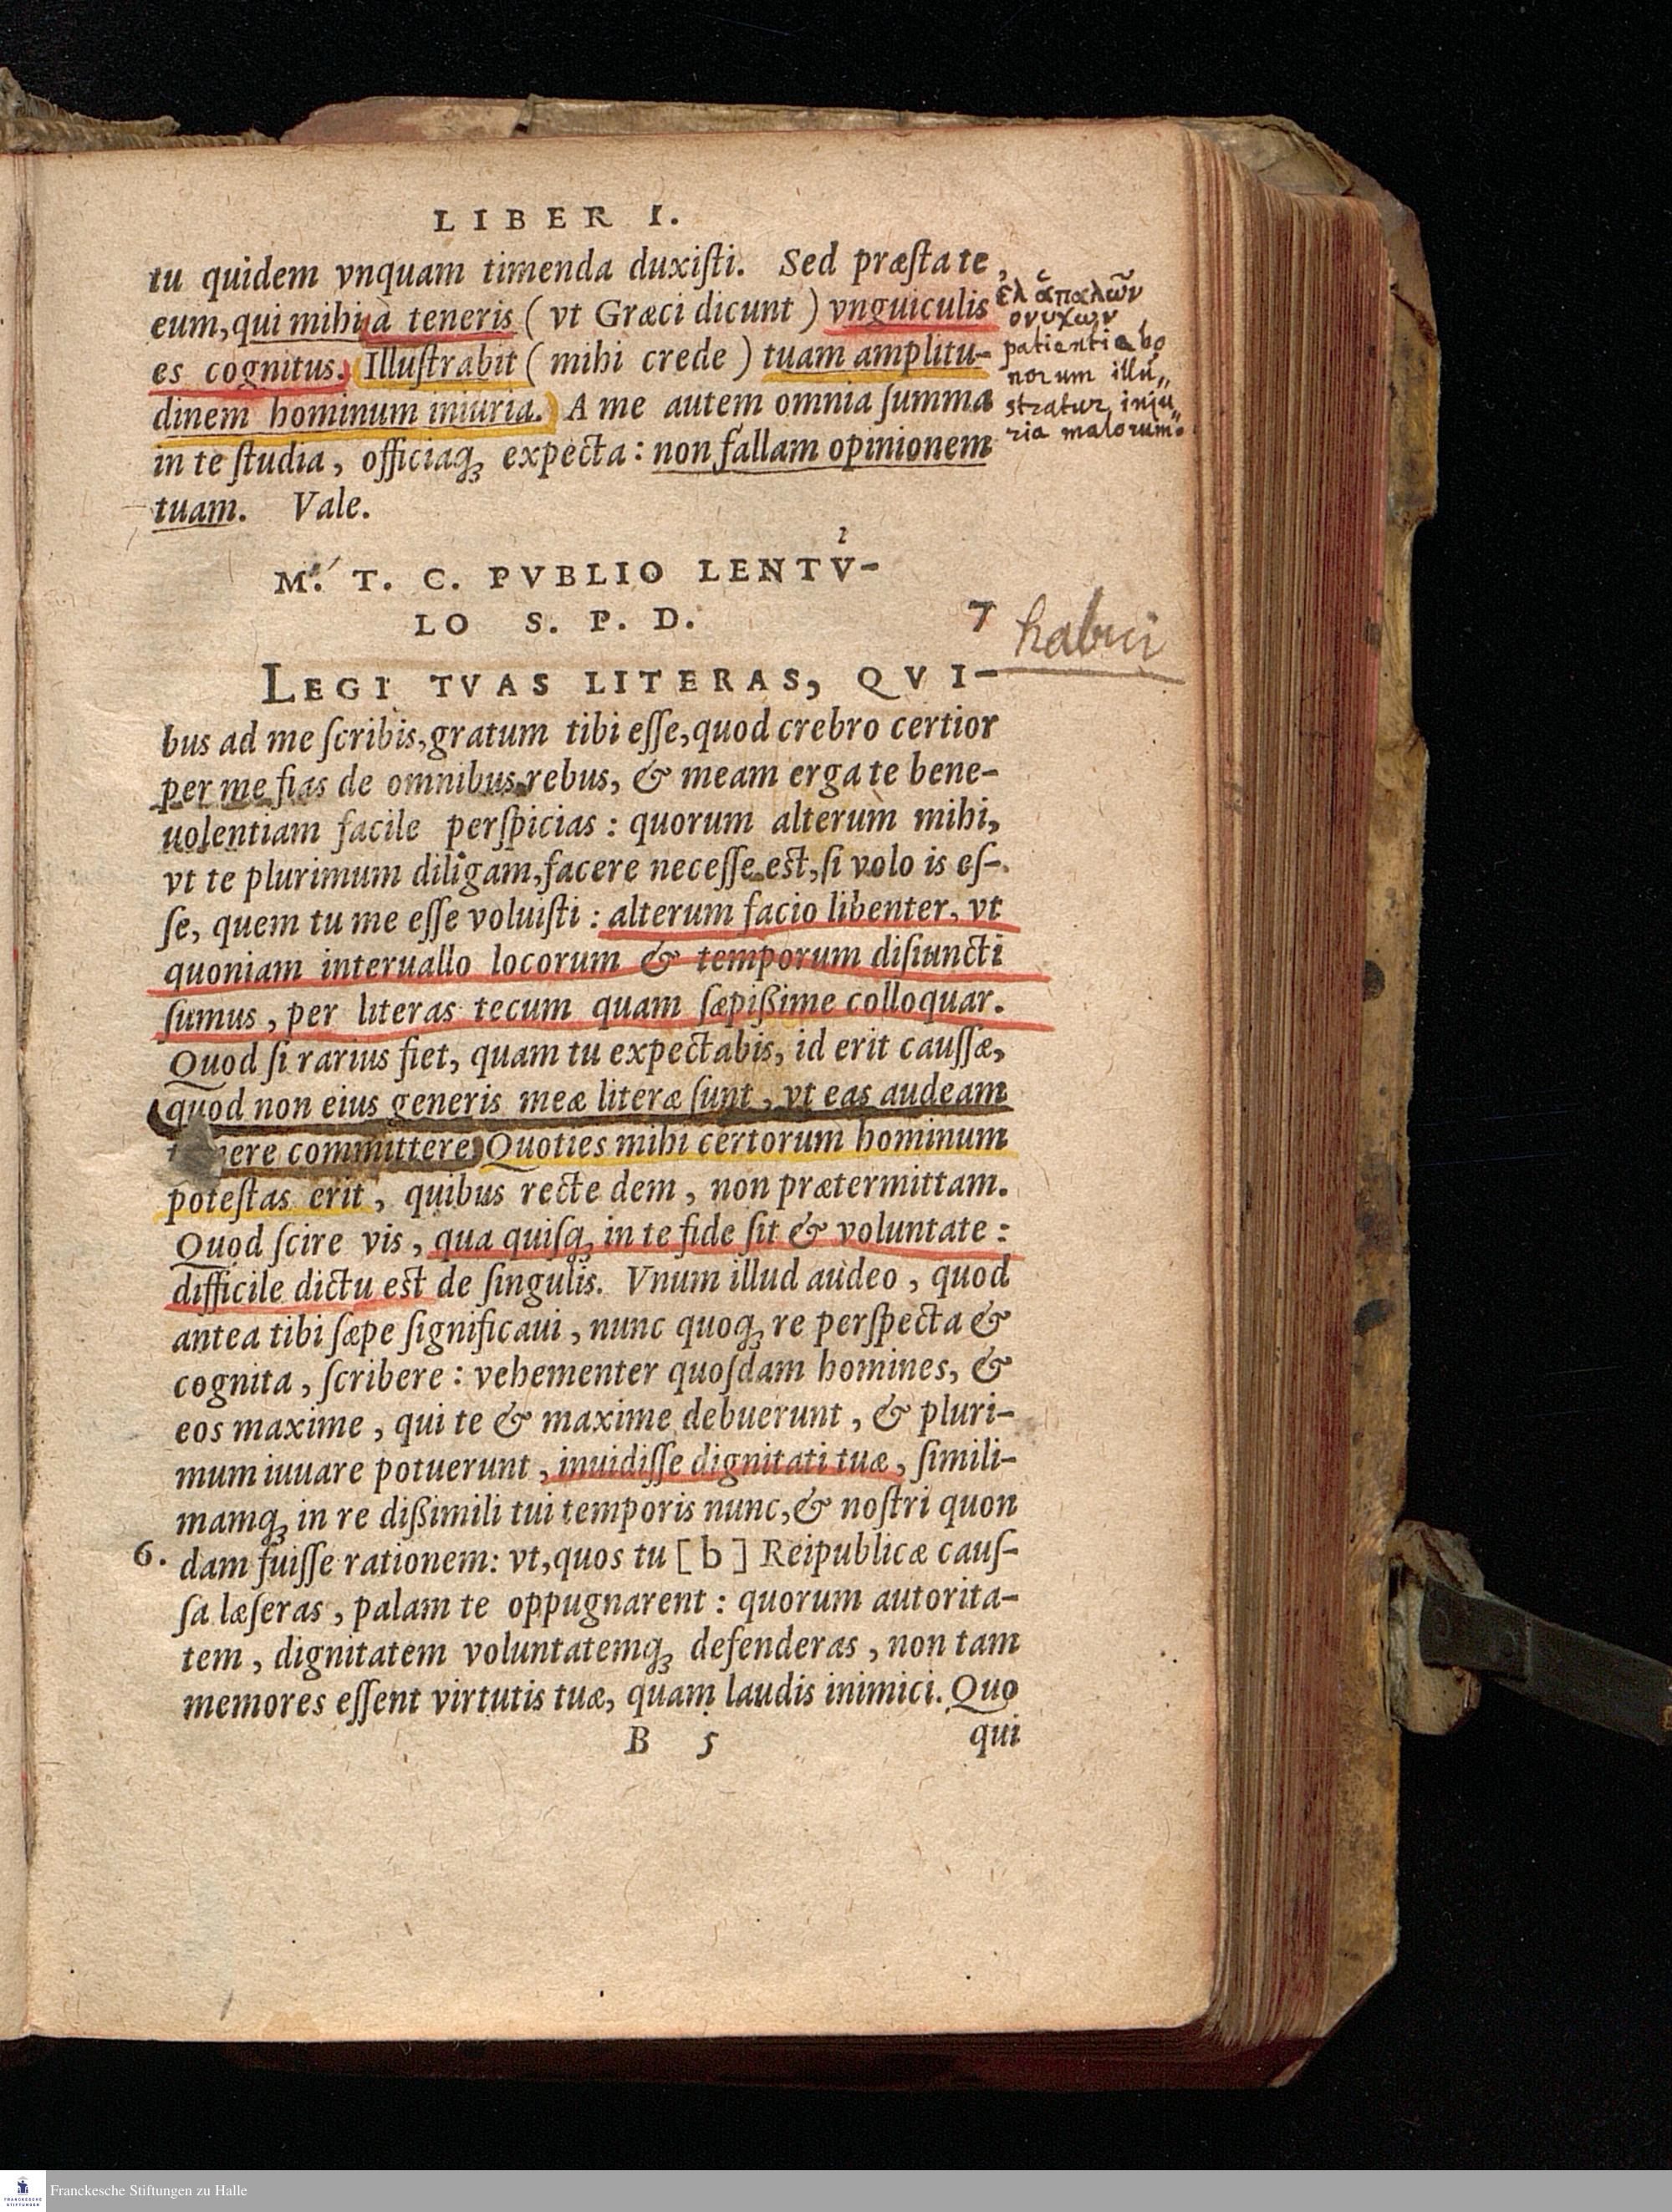 LIBER I.
tu quidem vnquam timenda duxiſti. Sed præſta te,
eum, qui mihi à teneris ( vt Græci dicunt ) vnguiculis
es cognitus. Illuſtrabit ( mihi crede ) tuam amplitu-
dinem hominum iniuria. A me autem omnia ſumma
in te ſtudia, officiaq́ꝫ expecta: non fallam opinionem
tuam. Vale.
ἁπαλῶν
ονυχων
patientia bo
norum illu„
stratur, inju„
ria malorum.
M. T. C. PVBLIO LENTV-
LO S. P. D. 7
habui
LEGI TVAS LITERAS, QVI-
bus ad me ſcribis, gratum tibi eſſe, quod crebro certior
per me fias de omnibus rebus, & meam erga te bene-
uolentiam facile perſpicias : quorum alterum mihi,
vt te plurimum diligam, facere neceſſe est, ſi volo is eſ-
ſe, quem tu me eſſe voluiſti : alterum facio libenter, vt
quoniam interuallo locorum & temporum diſiuncti
ſumus, per literas tecum quam ſæpißime colloquar.
Quod ſi rarius fiet, quam tu expectabis, id erit cauſſæ,
quod non eius generis meæ literæ ſunt, vt eas audeam
committere. Quoties mihi certorum hominum
poteſtas erit, quibus recte dem, non prætermittam.
Quod ſcire vis, qua quiſq́ꝫ in te fide ſit & voluntate :
difficile dictu est de ſingulis. Vnum illud audeo, quod
antea tibi ſæpe ſignificaui, nunc quoq́ꝫ re perſpecta &
cognita, ſcribere : vehementer quoſdam homines, &
eos maxime, qui te & maxime debuerunt, & pluri-
mum iuuare potuerunt, inuidiſſe dignitati tuæ, ſimili-
mamq́ꝫ in re dißimili tui temporis nunc, & noſtri quon
6. dam fuiſſe rationem: vt, quos tu [ b ] Reipublicæ cauſ-
ſa læſeras, palam te oppugnarent : quorum autorita-
tem, dignitatem voluntatemq́ꝫ defenderas, non tam
memores eſſent virtutis tuæ, quam laudis inimici. Quo
B 5 qui
FRANCKESCHE
STIFTUNGEN
Franckesche Stiftungen zu Halle